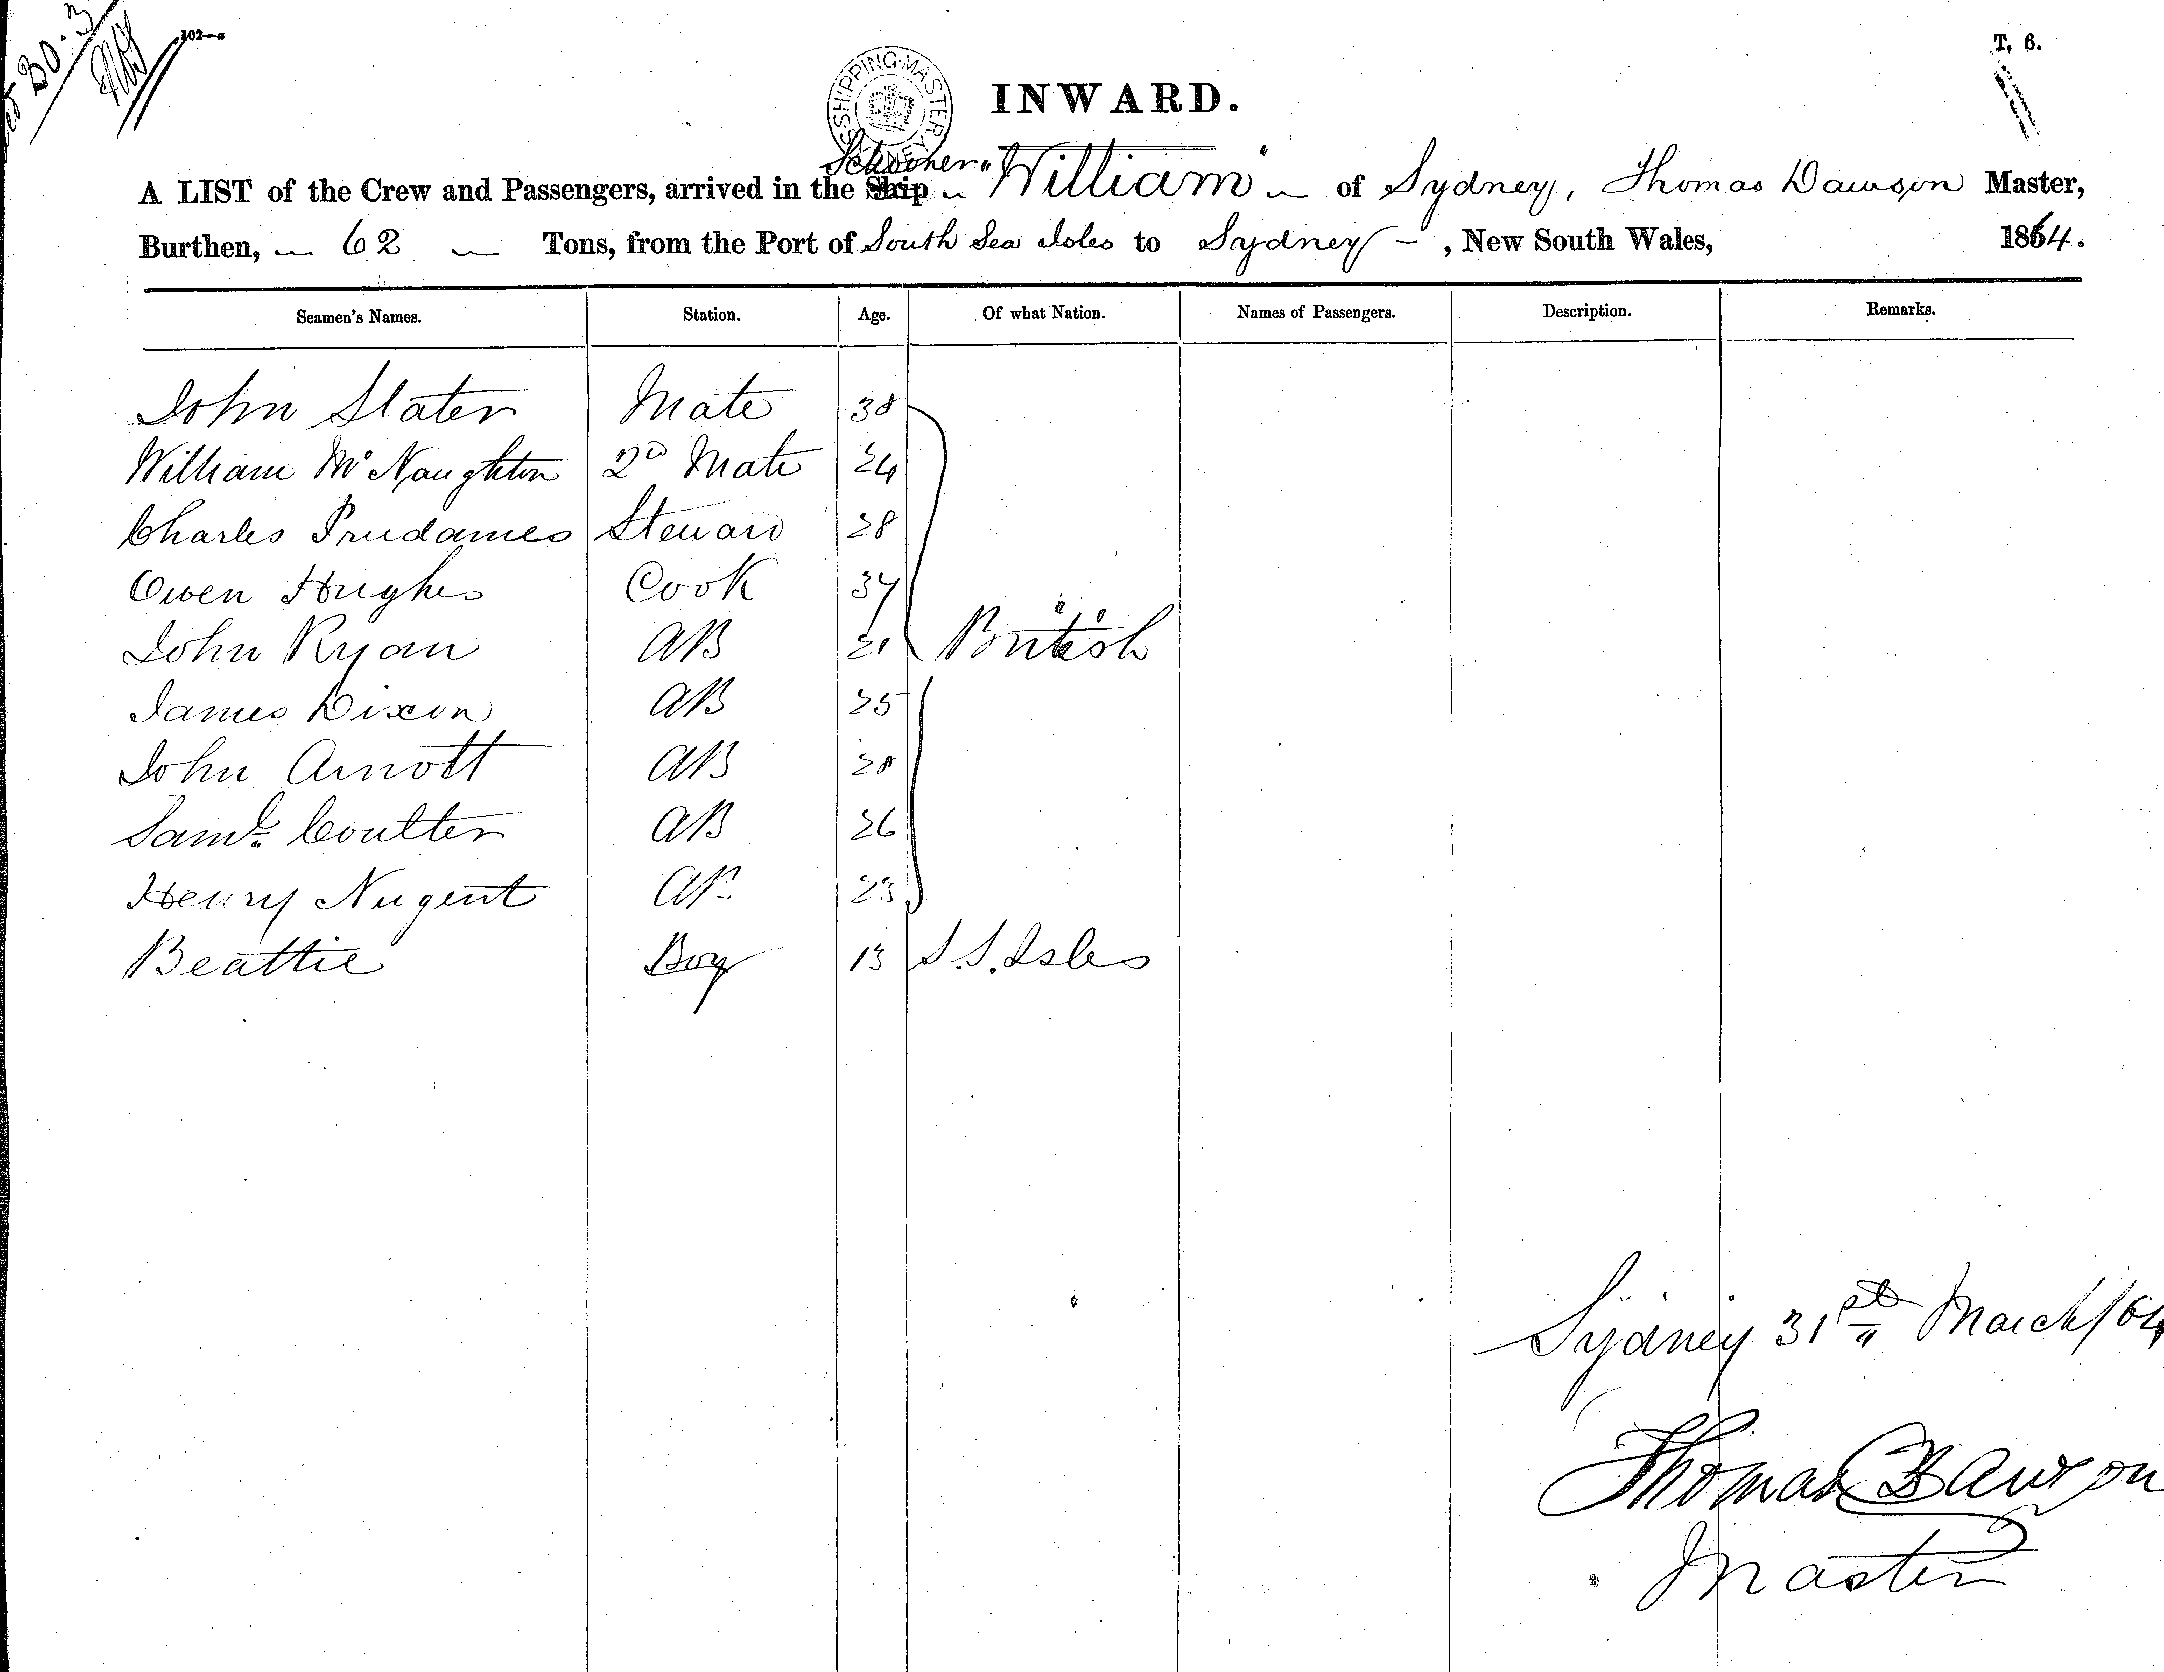 102—a
T. 6.
SHIPPING MASTER SYDNEY
INWARD.
Schooner
A LIST of the Crew and Passengers, arrived in the Ship "William" of Sydney, Thomas Dawson Master,
Burthen, 62 Tons, from the Port of South Sea Isles to Sydney, New South Wales, 1864.
Seamen's Names. Station. Age. Of what Nation. Names of Passengers. Description. Remarks.
John Slater Mate 38
William McNaughton 2D Mate 24
Charles Prudames Steward 28
Owen Hughes Cook 34
John Ryan AB 21 British
James Dixon AB 25
John Arnott AB 28
Saml. Coulter AB 26
Henry Nugent AB 23
Beattie Boy 13 S.S. Isles
Sydney 31st March/64
Thomas Dawson
Master